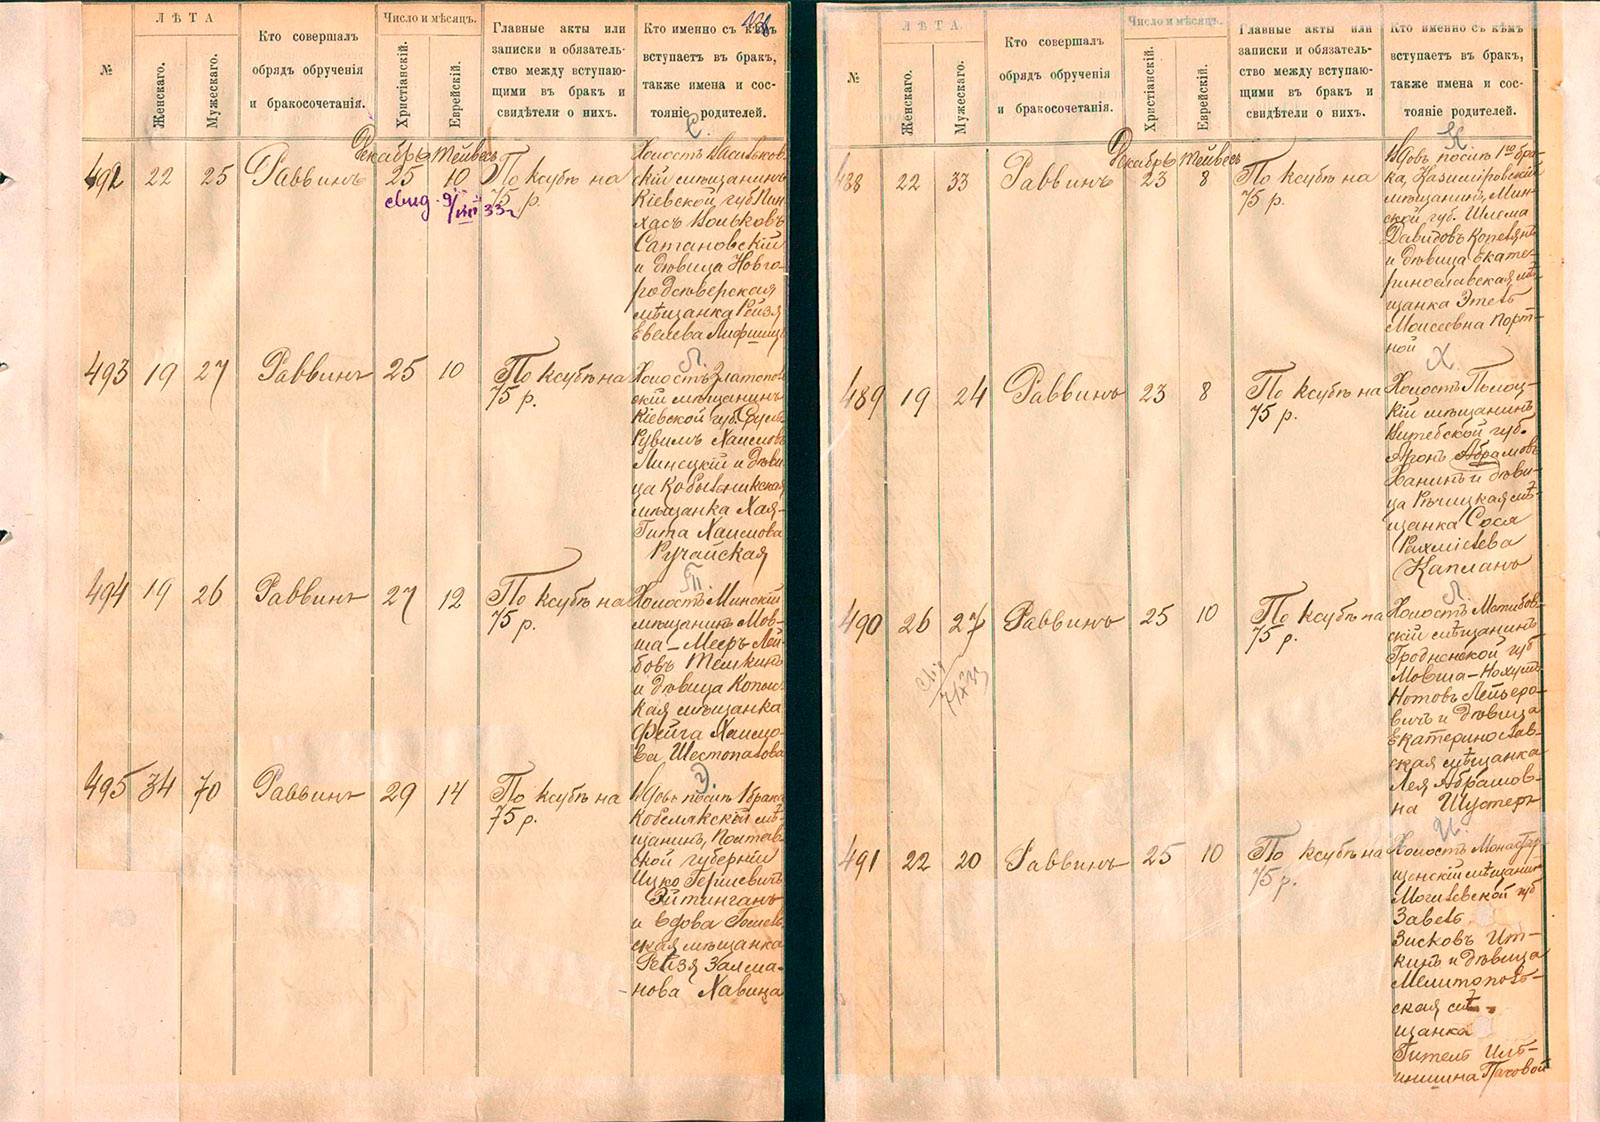 ЛѢТА
Число и мѣсяцъ.
№
Женскаго.
Мужескаго.
Кто совершалъ
обрядъ обрученія
и бракосочетанія.
Христіанскій.
Еврейскій.
Главные акты или
записки и обязатель-
ство между вступаю-
щими въ бракъ и
свидѣтели о нихъ.
Кто именно съ кѣмъ
вступаетъ въ бракъ,
также имена и сос-
тояніе родителей.
Декабрь Тейвесъ
492 22 25 Раввинъ 25 10 По ксубѣ на
75 р.
свид. 9/VIII 33 г
С.
Холостъ Васильков-
скій мѣщанинъ
Кіевской, губ Пин-
хасъ Вольковъ
Сатановскій
и дѣвица Новго-
родсѣверская
мѣщанка Рейзя
Евелева Лифшицъ
493 19 27 Раввинъ 25 10 По ксубѣ на
75 р.
Л.
Холостъ Златополь
скій мѣщанинъ
Кіевской губ.
Рувимъ Хаимовъ
Линецкій и дѣви
ца Кобыльникская
мѣщанка Хая-
Гита Хаимова
Ручайская
494 19 26 Раввинъ 27 12 По ксубѣ на
75 р.
Холостъ Минскій
мѣщанинъ Мов-
ша-Мееръ Лей-
бовъ Темкинъ
и дѣвица Копыс-
кая мѣщанка
Фейга Хаимо-
ва Шестопалова
495 34 70 Раввинъ 29 14 По ксубѣ на
75 р.
Э.
Вдовъ послѣ 1 брака
Кобелякскій мѣ-
щанинъ, Полтав-
ской губерніи
Ицко Гершевичъ
Эйтинганъ
и вдова Гомель-
ская мѣщанка
Рейзя Залма-
нова Хавина
ЛѢТА.
Число и мѣсяцъ.
№
Женскаго.
Мужескаго.
Кто совершалъ
обрядъ обрученія
и бракосочетанія.
Христіанскій.
Еврейскій.
Главные акты или
записки и обязатель-
ство между вступаю-
щими въ бракъ и
свидѣтели о нихъ.
Кто именно съ кѣмъ
вступаетъ въ бракъ,
также имена и сос-
тояніе родителей.
Декабрь Тейвесъ
488 22 33 Раввинъ 23 8 По ксубѣ на
75 р.
К.
Вдовъ послѣ 1го бра-
ка, Казимировскій
мѣщанинъ, Мин-
ской, губ. Шлема
Давидовъ
и дѣвица Екате-
ринославская мѣ-
щанка Этель
Моисеевна Порт-
ной
489 19 24 Раввинъ 23 8 По ксубѣ на
75 р.
Х
Холостъ Полоц-
кій мѣщанинъ
Витебской губ.
Аронъ Абрамовъ
Ханинъ и дѣви-
ца Рѣчицкая мѣ-
щанка Сося
Рахміелева
Капланъ
490 26 27 Раввинъ 25 10 По ксубѣ на
75 р.
Л.
Холостъ
скій мѣщанинъ
Гродненской губ
Мовша-Нохумъ
Нотовъ Лейзеро-
вичъ и дѣвица
Екатеринослав-
ская мѣщанка
Лея Абрамов-
на Шустеръ
491 22 20 Раввинъ 25 10 По ксубѣ на
75 р.
И.
Холостъ Монастыр
щенскій мѣщанинъ
Могилевской губ
Завель
Зисковъ Ит-
кинъ и дѣвица
Мелитополь-
ская мѣ-
щанка
Гитель Иль-
инишна